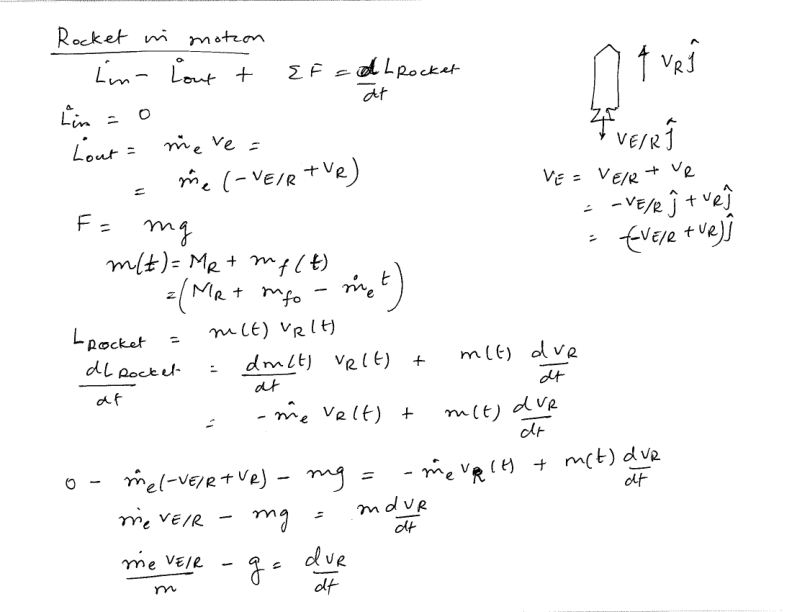 Rocket in motion
L̇in - L̇out + ΣF = dLRocket/dt
L̇in = 0
L̇out = ṁe ve =
= ṁe (-VE/R + VR)
F = mg
m(t) = MR + mf(t)
= (MR + mfo - ṁe t)
LRocket = m(t) VR(t)
dLRocket/dt = dm(t)/dt VR(t) + m(t) dVR/dt
= -ṁe VR(t) + m(t) dVR/dt
0 - ṁe(-VE/R + VR) - mg = -ṁe VR(t) + m(t) dVR/dt
ṁe VE/R - mg = m dVR/dt
ṁe VE/R / m - g = dVR/dt
VR ĵ
VE/R ĵ
VE = VE/R + VR
= -VE/R ĵ + VR ĵ
= (-VE/R + VR) ĵ